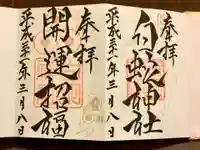 奉拝
白蛇神社
平成三十一年三月八日
奉拝
開運招福
平成三十一年三月八日